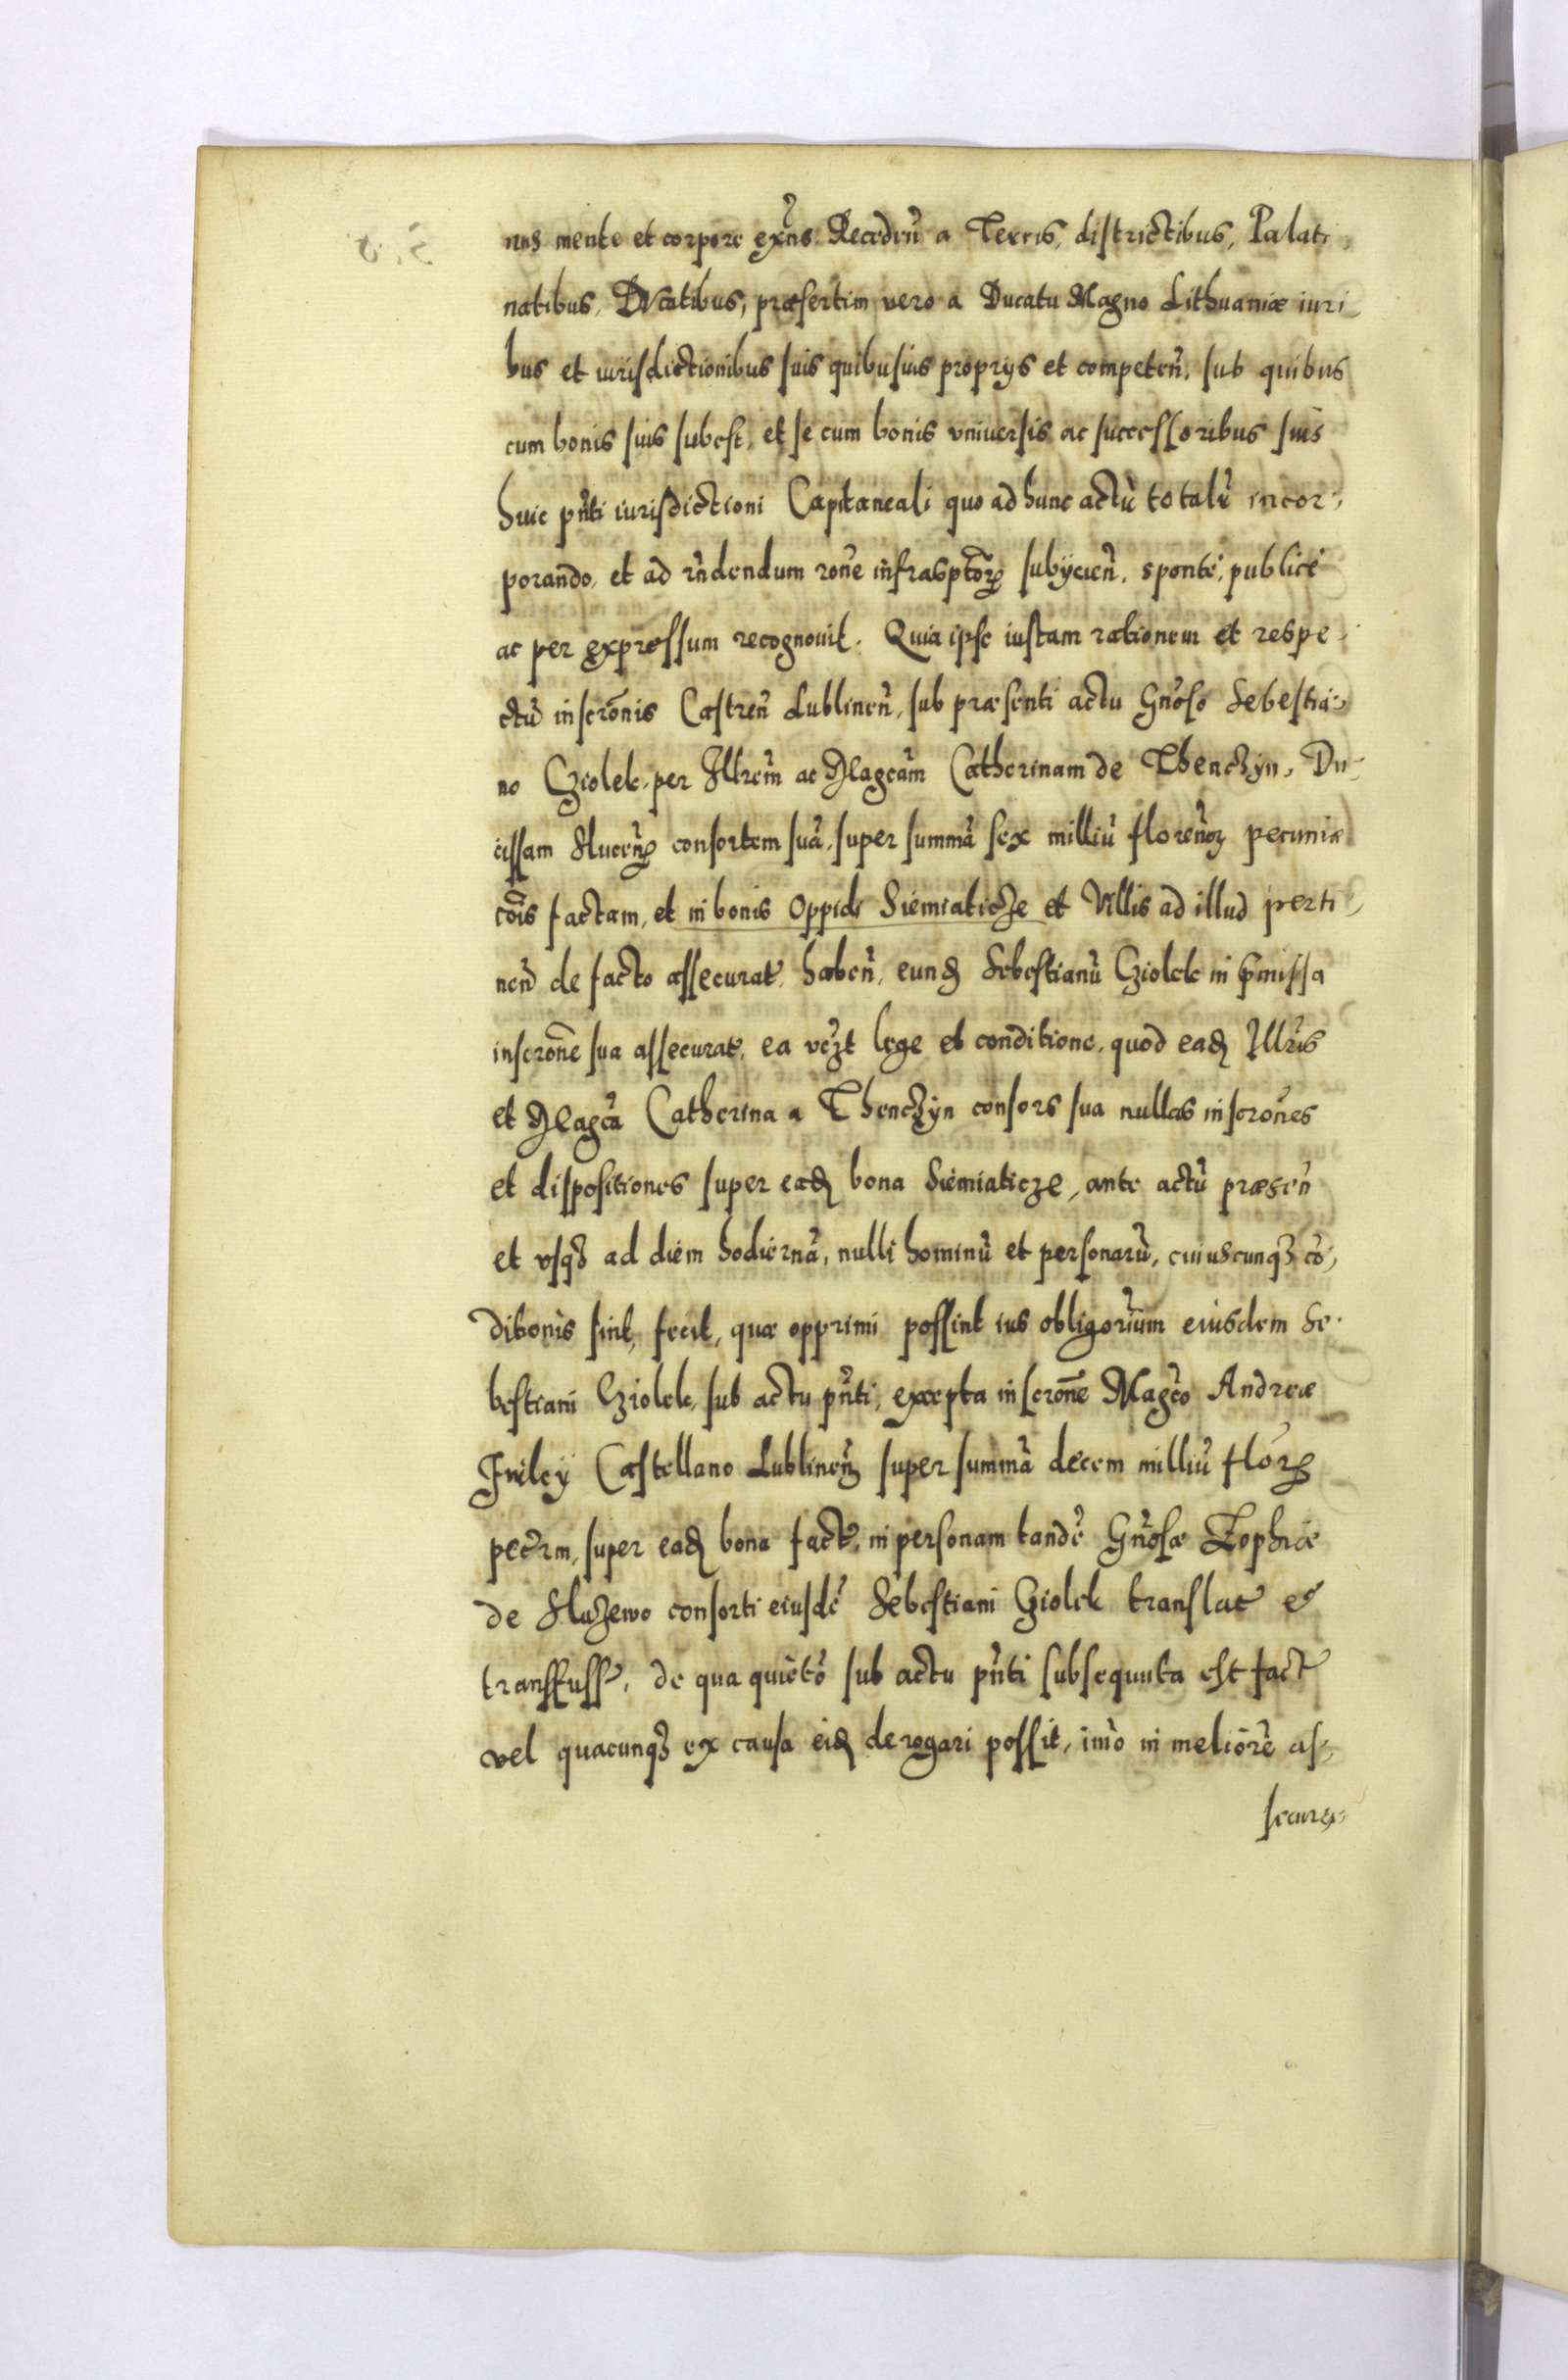 nus mente et corpore exñs. Recedeñ a Terris, districtibus, Palati,
natibus, Ducatibus, præsertim vero a Ducatu Magno Lithuaniæ iuri,
bus et iurisdictionibus suis quibusuis proprys et competeñ, sub quibus
cum bonis suis subest, et se cum bonis vniuersis ac successoribus suis
huic pñti iurisdictioni Capitaneali quo ad hunc actũ totalr incor,
porando, et ad rñdendum rone infrasptoꝝ subÿcieñ, sponte, publice
ac per expressum recognouit. Quia ipse iustam rationem et respe,
ctũ inscrõnis Castreñ Lublineñ, sub præsenti actu Gnõso Sebestia,
no Cziolek, per Illrem ac Magcam Catherinam de Thenczyn, Du,
cissam Slucen̄ consortem suã, super summã sex milliũ florenoꝝ pecuniæ
cõis factam, et in bonis Oppidi Siemiaticze et Villis ad illud perti,
neñ de facto assecurat habeñ, eunđ Sebestianũ Cziolek in p̃missa
inscrõne sua assecurat, ea vczt lege et conditione, quod eađ Illris
et Magca Catherina a Thenczyn consors sua nullas inscrões
et dispositiones super eađ bona Siemiaticze, ante actũ præseñ
et vsqȝ ad diem hodiernã, nulli hominũ et personarũ, cuiuscunqȝ cõ,
ditonis sint, fecit, quæ opprimi possint ius obligorium eiusdem Se,
bestiani Cziolek, sub actu pñti, excepta inscrõne Magco Andreæ
Firley Castellano Lublineñ super summã decem milliũ floꝝ
pecrm, super eađ bona fact, in personam tandẽ Gnõsæ Zophiæ
de Sluzewo consorti eiusdẽ Sebestiani Cziolek translat et
transfuss, de qua quieto sub actu pñti subsequuta est fact
vel quacunqȝ ex causa eiđ derogari possit, imo in meliorẽ as,
secura,